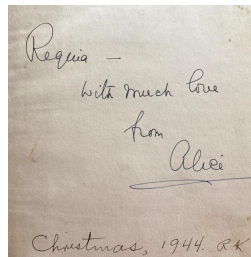 Regina —
with much love
from
Alice
Christmas, 1944. RK